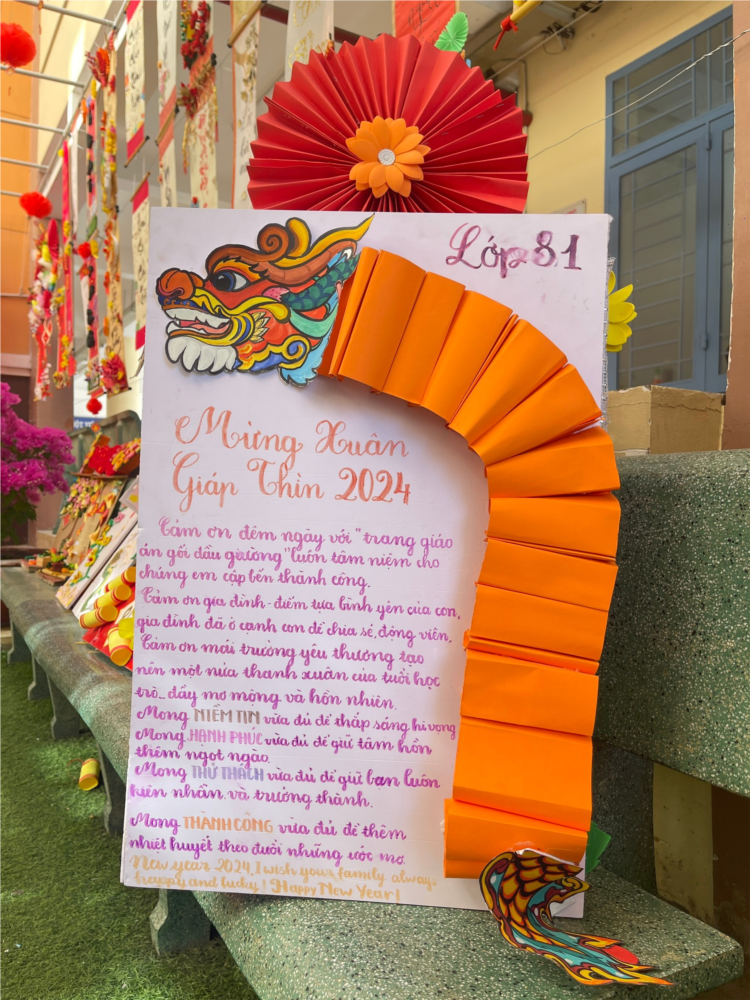 Lớp 8.1
Mừng Xuân
Giáp Thìn 2024
Cảm ơn đêm ngày với "trang giáo
án gối đầu giường" luôn tâm niệm cho
chúng em cập bến thành công.
Cảm ơn gia đình - điểm tựa bình yên của con,
gia đình đã ở cạnh con để chia sẻ, động viên.
Cảm ơn mái trường yêu thương tạo
nên một nửa thanh xuân của tuổi học
trò_ đầy mơ mộng và hồn nhiên.
Mong NIỀM TIN vừa đủ để thắp sáng hi vọng
Mong HẠNH PHÚC vừa đủ để giữ tâm hồn
thêm ngọt ngào.
Mong THỬ THÁCH vừa đủ để giữ bạn luôn
kiên nhẫn và trưởng thành.
Mong THÀNH CÔNG vừa đủ để thêm
nhiệt huyết theo đuổi những ước mơ.
New year 2024, I wish your family always
happy and lucky! Happy New Year!